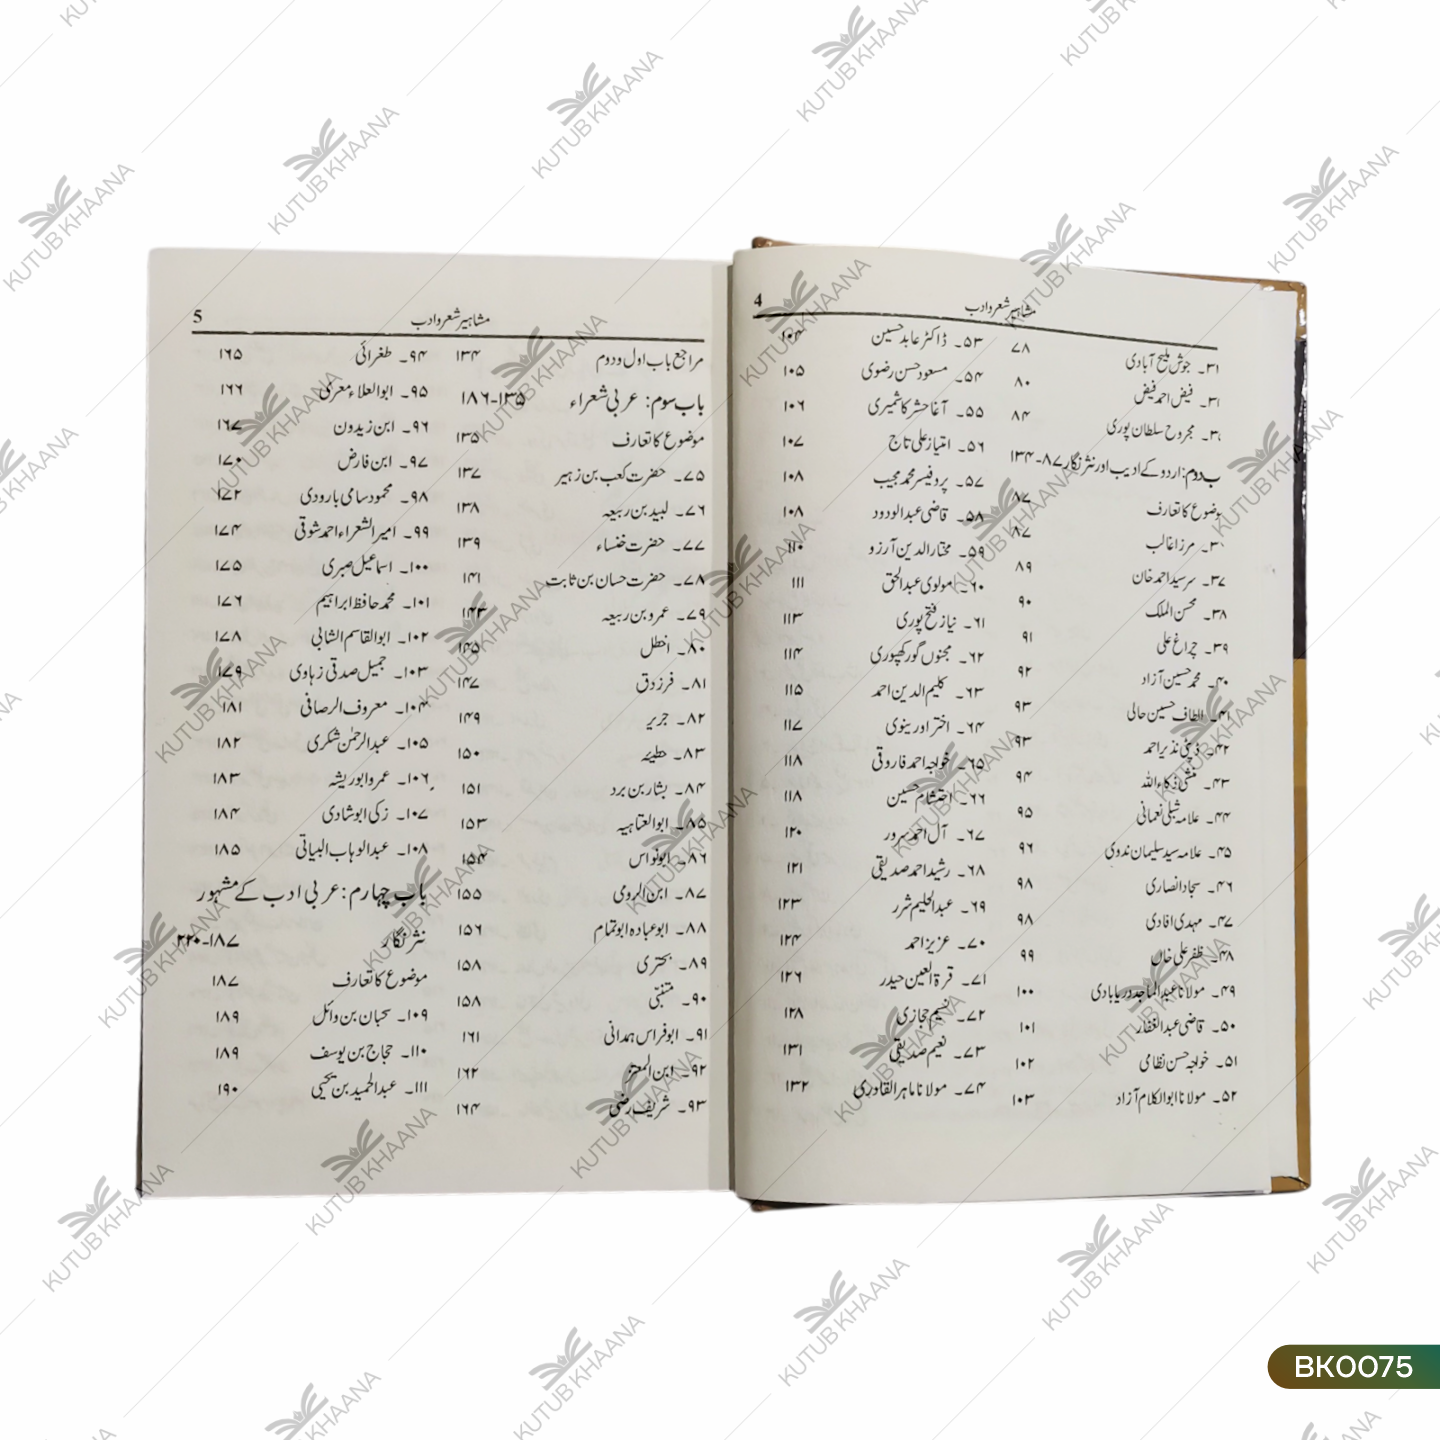 4
مشاہیر شعر و ادب
۳۔ جوش ملیح آبادی ۷۸
۳۔ فیض احمد فیض ۸۰
۳۔ مجروح سلطان پوری ۸۴
ب دوم: اردو کے ادیب اور نثر نگار ۸۷-۱۳۴
موضوع کا تعارف ۸۷
۳۔ مرزا غالب ۸۷
۳۷۔ سرسید احمد خان ۸۹
۳۸۔ محسن الملک ۹۰
۳۹۔ چراغ علی ۹۱
۴۰۔ محمد حسین آزاد ۹۲
۴۱۔ الطاف حسین حالی ۹۳
۴۲۔ ڈپٹی نذیر احمد ۹۳
۴۳۔ منشی ذکاء اللہ ۹۴
۴۴۔ علامہ شبلی نعمانی ۹۵
۴۵۔ علامہ سید سلیمان ندوی ۹۶
۴۶۔ سجاد انصاری ۹۸
۴۷۔ مہدی افادی ۹۸
۴۸۔ ظفر علی خاں ۹۹
۴۹۔ مولانا عبدالماجد دریابادی ۱۰۰
۵۰۔ قاضی عبدالغفار ۱۰۱
۵۱۔ خواجہ حسن نظامی ۱۰۲
۵۲۔ مولانا ابوالکلام آزاد ۱۰۳
۵۳۔ ڈاکٹر عابد حسین ۱۰۴
۵۴۔ مسعود حسن رضوی ۱۰۵
۵۵۔ آغا حشر کاشمیری ۱۰۶
۵۶۔ امتیاز علی تاج ۱۰۷
۵۷۔ پروفیسر محمد مجیب ۱۰۸
۵۸۔ قاضی عبدالودود ۱۰۸
۵۹۔ مختار الدین آرزو ۱۱۰
۶۰۔ مولوی عبدالحق ۱۱۱
۶۱۔ نیاز فتح پوری ۱۱۳
۶۲۔ مجنوں گورکھپوری ۱۱۴
۶۳۔ کلیم الدین احمد ۱۱۵
۶۴۔ اختر اورینوی ۱۱۷
۶۵۔ خواجہ احمد فاروقی ۱۱۸
۶۶۔ احتشام حسین ۱۱۸
۶۷۔ آل احمد سرور ۱۲۰
۶۸۔ رشید احمد صدیقی ۱۲۱
۶۹۔ عبدالحلیم شرر ۱۲۳
۷۰۔ عزیز احمد ۱۲۴
۷۱۔ قرۃ العین حیدر ۱۲۶
۷۲۔ نسیم حجازی ۱۲۸
۷۳۔ نعیم صدیقی ۱۳۱
۷۴۔ مولانا ماہر القادری ۱۳۲
5
مشاہیر شعر و ادب
مراجع باب اول و دوم ۱۳۴
باب سوم: عربی شعراء ۱۳۵-۱۸۶
موضوع کا تعارف ۱۳۵
۷۵۔ حضرت کعب بن زہیر ۱۳۷
۷۶۔ لبید بن ربیعہ ۱۳۸
۷۷۔ حضرت خنساء ۱۳۹
۷۸۔ حضرت حسان بن ثابت ۱۴۱
۷۹۔ عمرو بن ربیعہ ۱۴۳
۸۰۔ اخطل ۱۴۵
۸۱۔ فرزدق ۱۴۷
۸۲۔ جریر ۱۴۹
۸۳۔ حطیئہ ۱۵۰
۸۴۔ بشار بن برد ۱۵۱
۸۵۔ ابوالعتاہیہ ۱۵۳
۸۶۔ ابونواس ۱۵۴
۸۷۔ ابن الرومی ۱۵۵
۸۸۔ ابوعبادہ ابوتمام ۱۵۶
۸۹۔ بحتری ۱۵۸
۹۰۔ متنبی ۱۵۸
۹۱۔ ابوفراس ہمدانی ۱۶۱
۹۲۔ ابن المعتز ۱۶۲
۹۳۔ شریف رضی ۱۶۴
۹۴۔ طغرائی ۱۶۵
۹۵۔ ابوالعلاء معری ۱۶۶
۹۶۔ ابن زیدون ۱۶۷
۹۷۔ ابن فارض ۱۷۰
۹۸۔ محمود سامی بارودی ۱۷۲
۹۹۔ امیر الشعراء احمد شوقی ۱۷۴
۱۰۰۔ اسماعیل صبری ۱۷۵
۱۰۱۔ محمد حافظ ابراہیم ۱۷۶
۱۰۲۔ ابوالقاسم الشابی ۱۷۸
۱۰۳۔ جمیل صدقی زہاوی ۱۷۹
۱۰۴۔ معروف الرصافی ۱۸۱
۱۰۵۔ عبدالرحمٰن شکری ۱۸۲
۱۰۶۔ عمر و ابوریشہ ۱۸۳
۱۰۷۔ زکی ابو شادی ۱۸۴
۱۰۸۔ عبدالوہاب البیاتی ۱۸۵
باب چہارم: عربی ادب کے مشہور
نثر نگار ۱۸۷-۲۲۰
موضوع کا تعارف ۱۸۷
۱۰۹۔ سحبان بن وائل ۱۸۹
۱۱۰۔ حجاج بن یوسف ۱۸۹
۱۱۱۔ عبدالحمید بن یحییٰ ۱۹۰
KUTUB KHAANA
BK0075